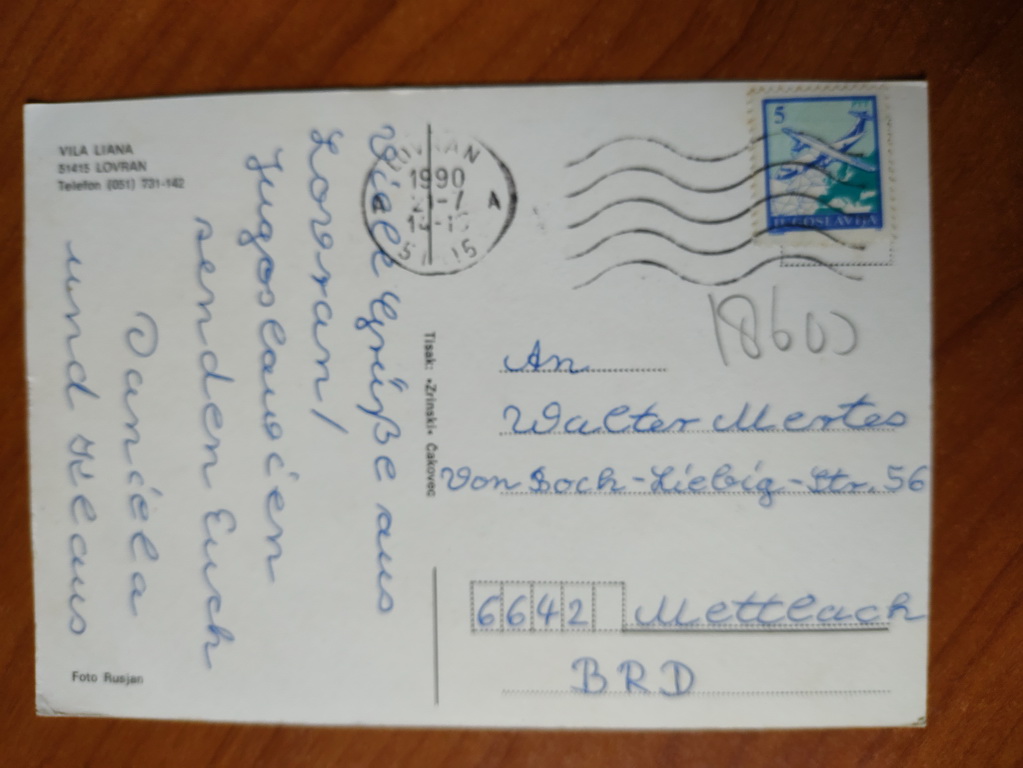 VILA LIANA
51415 LOVRAN
Telefon (051) 731-142
Viele Grüße aus
Lovran/
Jugoslawien
senden Euch
Daniela
und Klaus
Foto Rusjan
Tisak: »Zrinski« Čakovec
LOVRAN
1990
A
5
JUGOSLAVIJA
18603
An
Walter Mertes
Von Boch-Liebig-Str. 56
6642 Mettlach
BRD